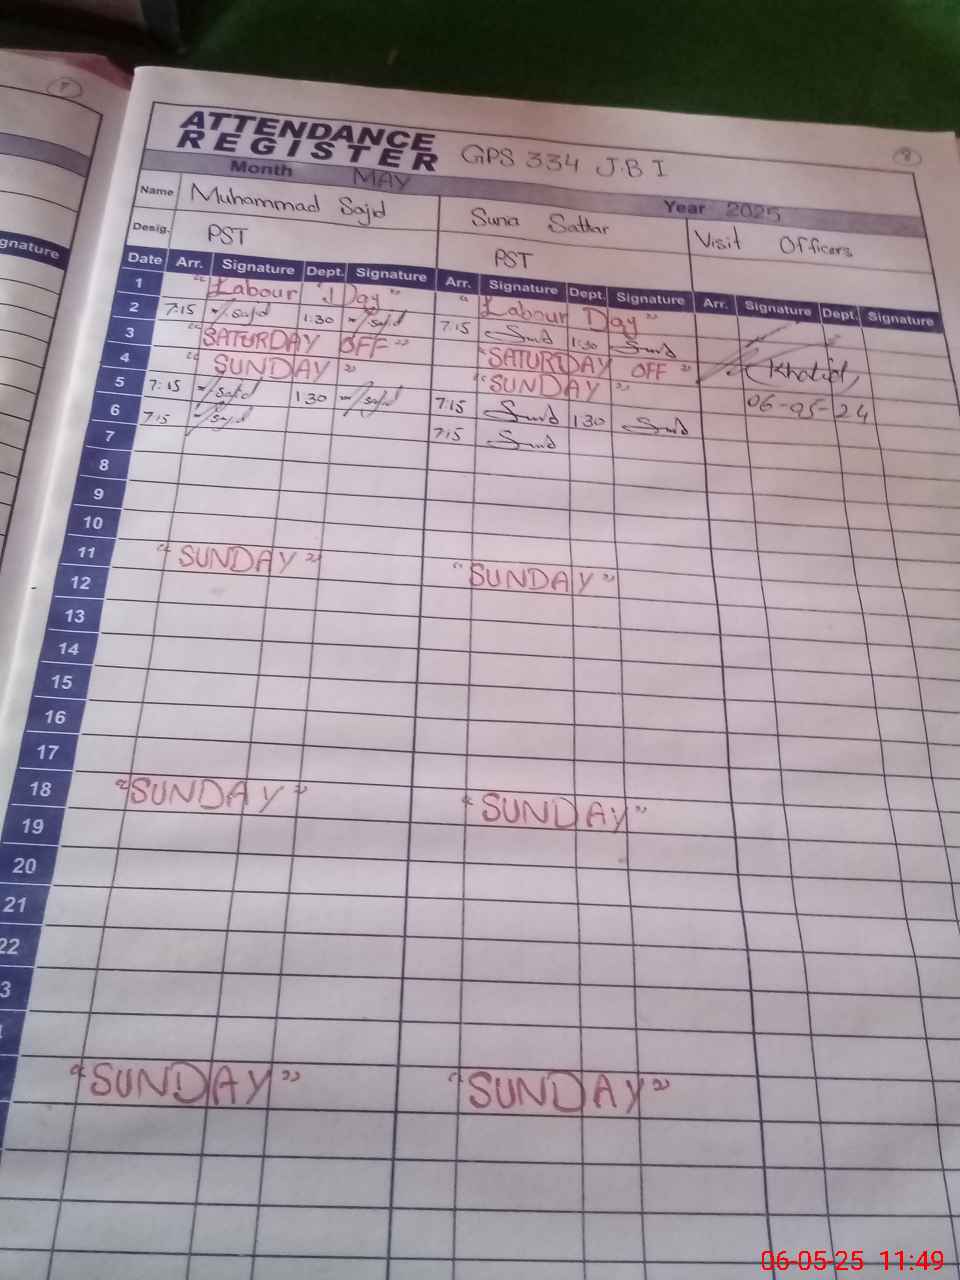 7
8
ATTENDANCE
REGISTER GPS 334 J.B I
Month MAY Year 2025
Name Muhammad Sajid Suna Sattar Visit Officers
Desig. PST PST
gnature
Date Arr. Signature Dept. Signature Arr. Signature Dept. Signature Arr. Signature Dept. Signature
1 "Labour Day" "Labour Day"
2 7:15 Sajid 1:30 Sajid 7:15 1:30
3 "SATURDAY OFF" "SATURDAY OFF"
4 "SUNDAY" "SUNDAY" (Khalid)
5 7:15 Sajid 1:30 Sajid 7:15 1:30 06-05-24
6 7:15 Sajid 7:15
7
8
9
10
11 "SUNDAY" "SUNDAY"
12
13
14
15
16
17
18 "SUNDAY" "SUNDAY"
19
20
21
22
3
"SUNDAY" "SUNDAY"
06-05-25 11:49